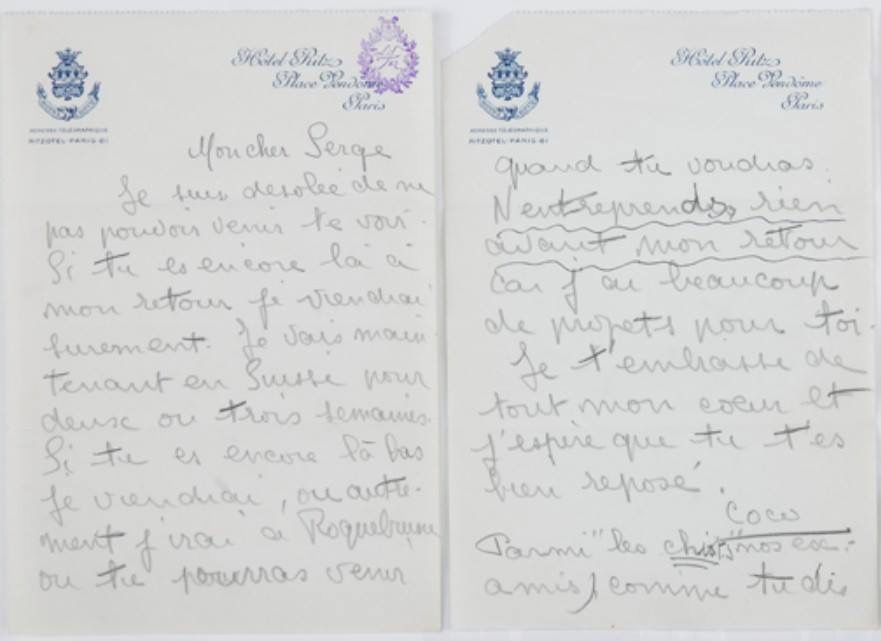 Hôtel Ritz
Place Vendôme
Paris
ADRESSE TÉLÉGRAPHIQUE
RITZOTEL-PARIS-01
Mon cher Serge
Je suis desolée de ne
pas pouvoir venir te voir.
Si tu es encore là à
mon retour je viendrai
surement. Je vais main
tenant en Suisse pour
deux ou trois semaines.
Si tu es encore là bas
je viendrai, ou autre-
ment j'irai à Roquebrune
ou tu pourras venir
Hôtel Ritz
Place Vendôme
Paris
ADRESSE TÉLÉGRAPHIQUE
RITZOTEL-PARIS-01
quand tu voudras.
N'entreprends rien
avant mon retour
car j'ai beaucoup
de projets pour toi.
Je t'embrasse de
tout mon coeur et
j'espère que tu t'es
bien reposé.
Coco
Parmi "les" nos ex:
amis, comme tu dis